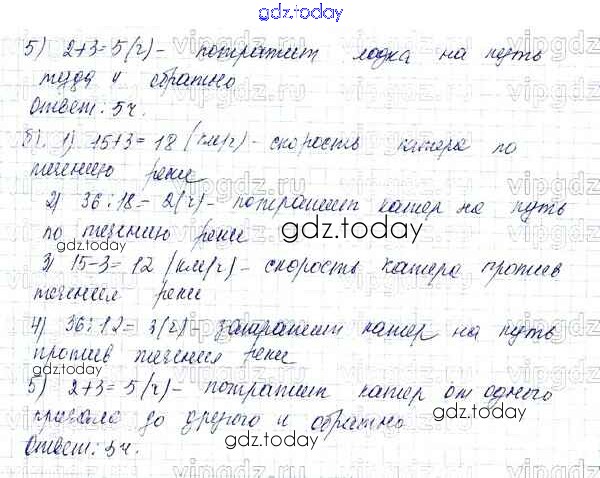 gdz.today
5) 2+3=5(ч) – потратит лодка на путь
туда и обратно
Ответ: 5ч.
б) 1) 15+3=18 (км/ч) – скорость катера по
течению реки
2) 36:18=2(ч) – потратит катер на путь
по течению реки
gdz.today
3) 15-3=12 (км/ч) – скорость катера против
течения реки
4) 36:12=3(ч) – затратит катер на путь
против течения реки
5) 2+3=5(ч) – потратит катер от одного
причала до другого и обратно
gdz.today
Ответ: 5ч.
vipgdz.ru